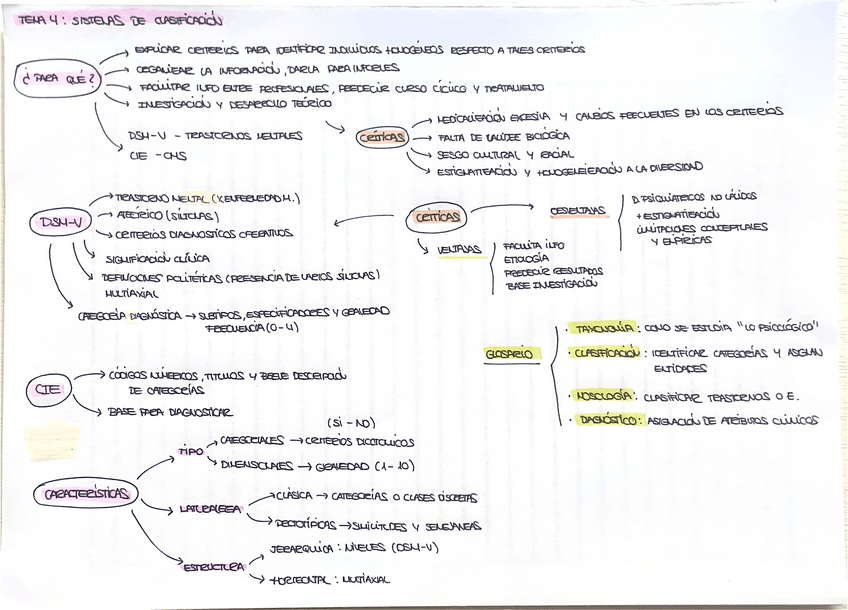 TEMA 4: SISTEMAS DE CLASIFICACIÓN
¿PARA QUÉ?
EXPLICAR CRITERIOS PARA IDENTIFICAR INDIVIDUOS HOMOGÉNEOS RESPECTO A TALES CRITERIOS
ORGANIZAR LA INFORMACIÓN, DARLA PARA INFORMES
FACILITAR INFO ENTRE PROFESIONALES, PREDECIR CURSO CLÍNICO Y TRATAMIENTO
INVESTIGACIÓN Y DESARROLLO TEÓRICO
DSM-V - TRASTORNOS MENTALES
CIE - OMS
CRÍTICAS
MEDICALIZACIÓN EXCESIVA Y CAMBIOS FRECUENTES EN LOS CRITERIOS
FALTA DE VALIDEZ BIOLÓGICA
SESGO CULTURAL Y RACIAL
ESTIGMATIZACIÓN Y HOMOGENEIZACIÓN A LA DIVERSIDAD
DSM-V
TRASTORNO MENTAL (X ENFERMEDAD M.)
ATEÓRICO (SÍNTOMAS)
CRITERIOS DIAGNOSTICOS OPERATIVOS
SIGNIFICACIÓN CLÍNICA
DEFINICIONES POLITÉTICAS (PRESENCIA DE VARIOS SÍNTOMAS)
MULTIAXIAL
CATEGORÍA DIAGNÓSTICA → SUBTIPOS, ESPECIFICADORES Y GRAVEDAD
FRECUENCIA (0-4)
CRÍTICAS
DESVENTAJAS
D. PSIQUIÁTRICOS NO VÁLIDOS
+ ESTIGMATIZACIÓN
LIMITACIONES CONCEPTUALES
Y EMPÍRICAS
VENTAJAS
FACILITA INFO
ETIOLOGÍA
PREDECIR RESULTADOS
BASE INVESTIGACIÓN
GLOSARIO
· TAXONOMÍA: COMO SE ESTUDIA "LO PSICOLÓGICO"
· CLASIFICACIÓN: IDENTIFICAR CATEGORÍAS Y ASIGNAN
ENTIDADES
· NOSOLOGÍA: CLASIFICAR TRASTORNOS O E.
· DIAGNÓSTICO: ASIGNACIÓN DE ATRIBUTOS CLÍNICOS
CIE
CÓDIGOS NÚMERICOS, TITULOS Y BREVE DESCRIPCIÓN
DE CATEGORÍAS
BASE PARA DIAGNOSTICAR
CARACTERÍSTICAS
TIPO
(SI - NO)
CATEGORIALES → CRITERIOS DICOTOMICOS
DIMENSIONALES → GRAVEDAD (1-10)
NATURALEZA
CLÁSICA → CATEGORÍAS O CLASES DISCRETAS
PROTOTÍPICAS → SIMILITUDES Y SEMEJANZAS
ESTRUCTURA
JERARQUICA: NIVELES (DSM-V)
HORIZONTAL: MULTIAXIAL